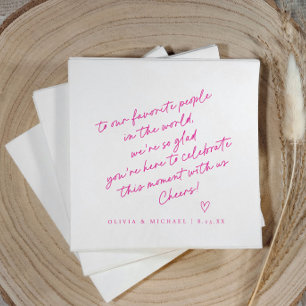 to our favorite people
in the world,
we're so glad
you're here to celebrate
this moment with us
Cheers!
OLIVIA & MICHAEL | 8.25.XX